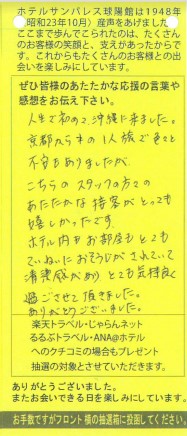 ホテルサンパレス球陽館は1948年
(昭和23年10月)産声をあげました。
ここまで歩んでこられたのは、たくさん
のお客様の笑顔と、支えがあったからで
す。これからもたくさんのお客様との出
会いを楽しみにしています。
ぜひ皆様のあたたかな応援の言葉や
感想をお伝え下さい。
人生で初めて沖縄に来ました。
京都からの1人旅で色々と
不安もありましたが
こちらのスタッフの方々の
あたたかな接客がとっても
嬉しかったです。
ホテル内もお部屋もとても
ていねいにおそうじがされていて
清潔感があり とても気持良く
過ごさせて頂きました。
ありがとうございました。
楽天トラベル・じゃらんネット
るるぶトラベル・ANA@ホテル
へのクチコミの場合もプレゼント
抽選の対象とさせていただきます。
ありがとうございました。
またお会いできる日を楽しみにしています。
お手数ですがフロント横の抽選箱に投函してください。